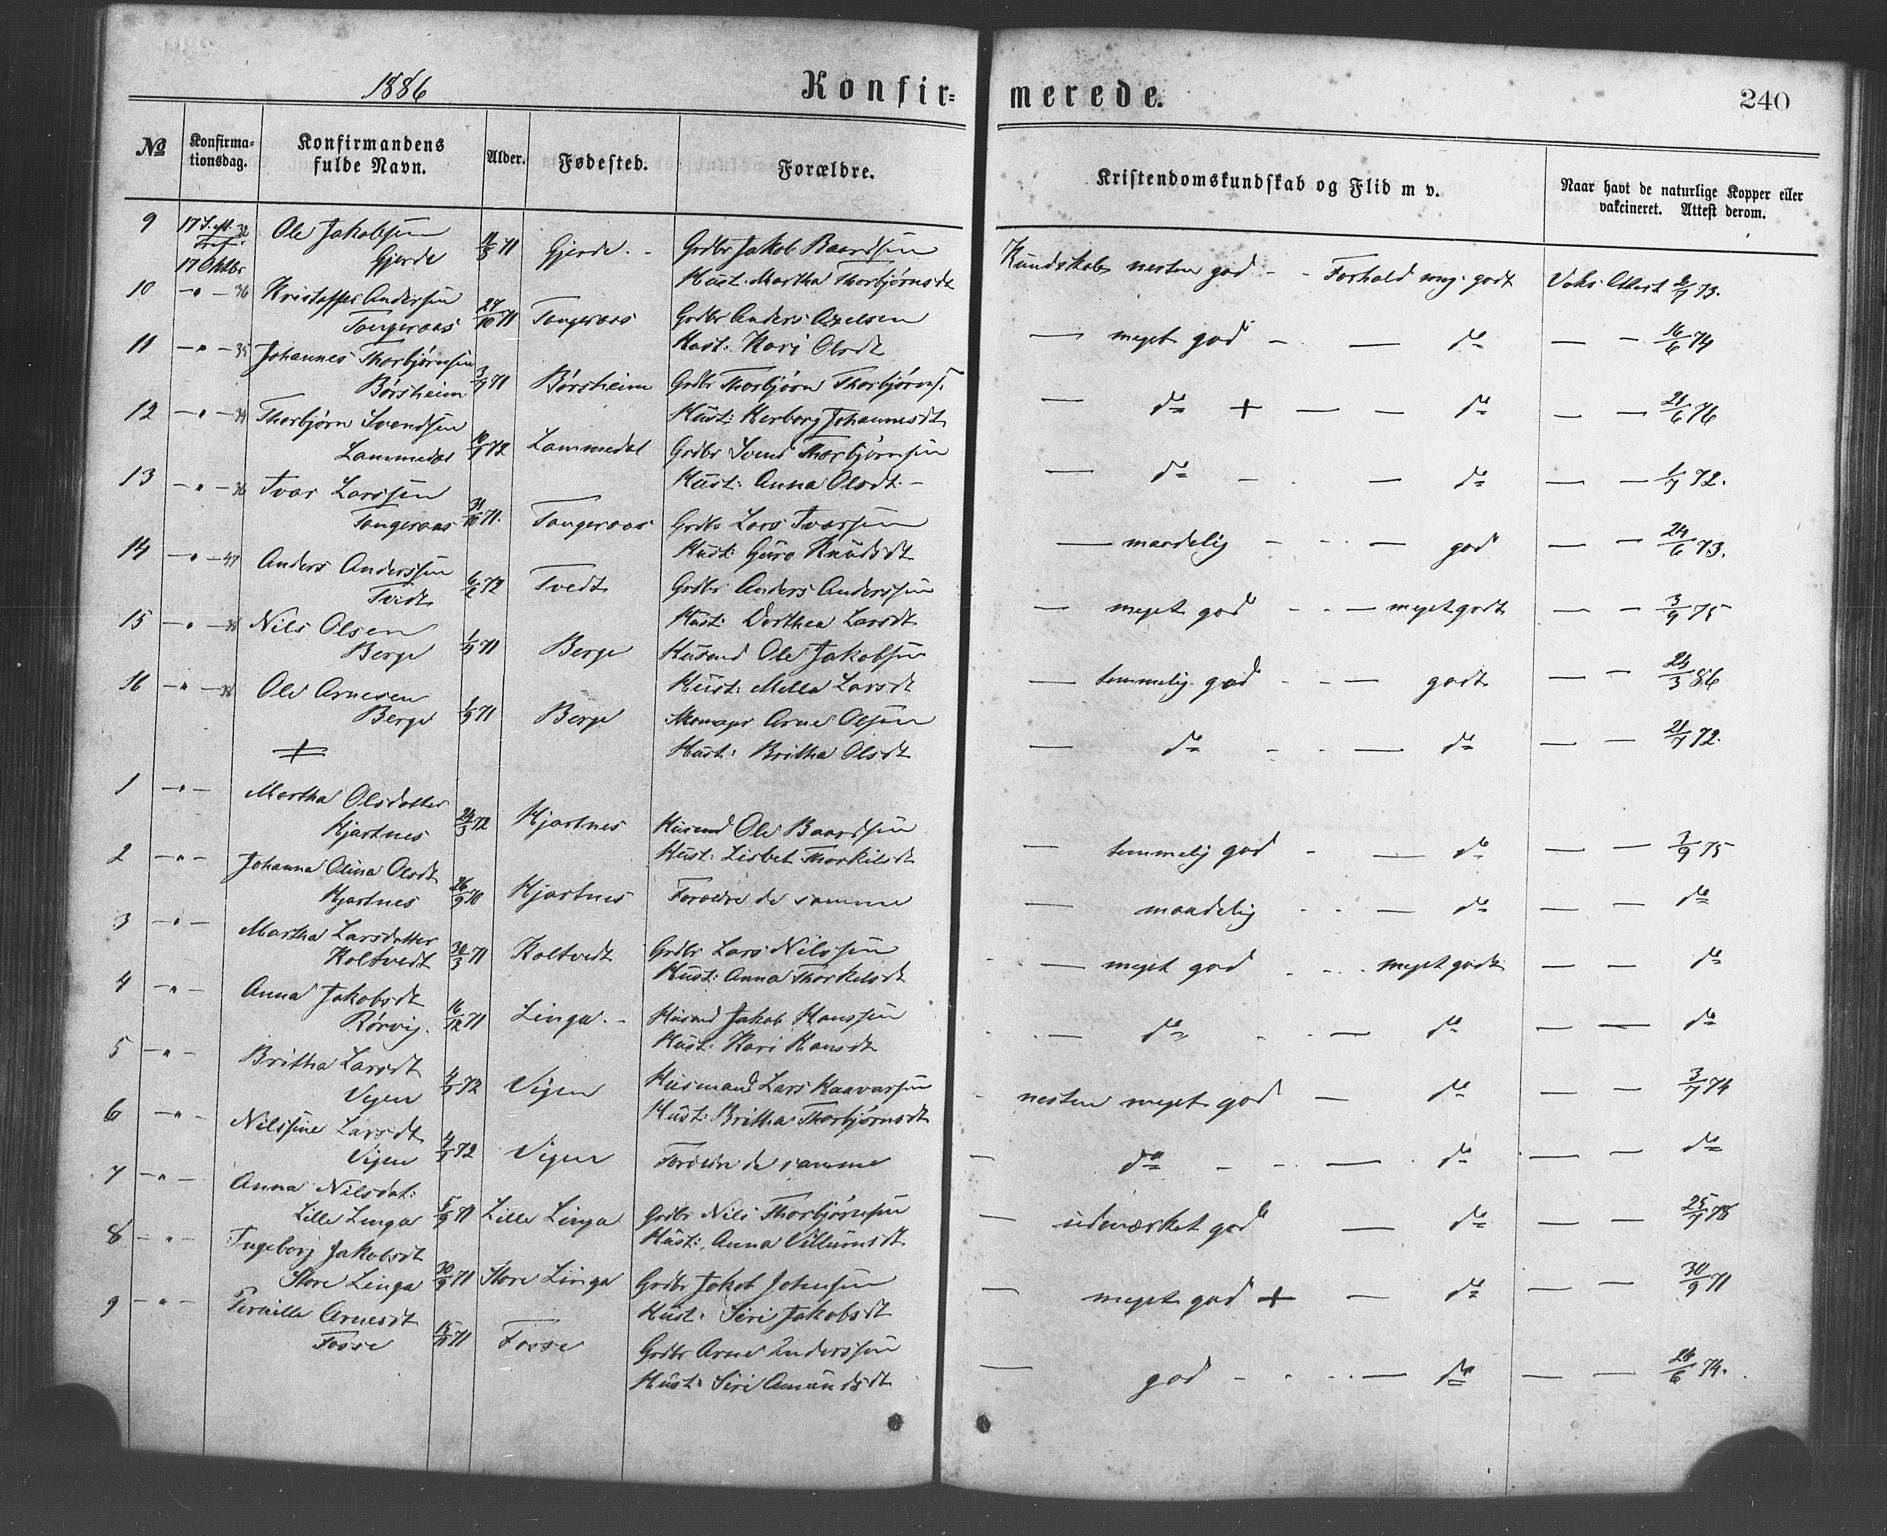 1886
Konfir=
merede.
240
No
Konfirma-
tionsdag.
Konfirmandens
fulde Navn.
Alder.
Fødested.
Forældre.
Kristendomskundskab og Flid m v.
Naar havt de naturlige Kopper eller
vakcineret. Attest derom.
9 Ole Jakobsen 71 Gjerde Grdbr Jakob Baardsen
17 Oktbr Gjerde Hust. Martha Thorbjørnsdt
Kundskab nesten god - - Forhold meg. godt 73.
10 - " - 36 Kristoffer Andersen
Tangeraas 27/10 71 Tangeraas Grdbr Anders Axelsen
Hust: Kari Olsdt
— meget god - — do — — 16/6 74
11 - " - 35 Johannes Thorbjørnsen
Børsheim 71 Børsheim Grdbr Thorbjørn Thorbjørns.
Hust: Herborg Johannesdt
— do + — - do — — 21/6 76
12 - " - 34 Thorbjørn Svendsen
Lammedal 72 Lammedal Grdbr Svend Thorbjørnsen
Hust: Anna Olsdt. -
— do - - do — — 72.
13 - " - 36 Ivar Larssen
Tangeraas 31/10 71. Tangeraas Grdbr Lars Ivarsen
Hust: Guro Knudsdt
— maadelig - - — god — — 24/6 73.
14 - " - 47 Anders Anderssen
Tvedt 72 Tvedt Grdbr Anders Anderssen
Hust: Dorthea Larsdt
— meget god - - — meget godt — — 3/9 75
15 - " - 38 Nils Olsen
Berge 71 Berge Husmd Ole Jakobsen
Hust: Mille Larsdt
— temmelig god - - — godt — — 24/3 86
16 - " - 38 Ole Arnesen
Berge 71 Berge Arne Olsen
Hust: Britha Olsdt
— do - — do — — 21/7 72.
+
1 - " - Martha Olsdatter
Kjartnes 72 Kjartnes Husmd Ole Baardsen
Hust: Lisbet Thorkilsdt
— temmelig god - — do — — 3/9 75
2 - " - Johanna Olina Olsdt
Kjartnes 26/9 70 Kjartnes Forældre de samme
— maadelig - - — do — — do
3 - " - Martha Larsdatter
Holtvedt 30/3 71 Holtvedt Grdbr Lars Nilssen
Hust: Anna Thorkilsdt
— meget god - - - meget godt — — do
4 - " - Anna Jakobsdt
Rørvig. 16/12 71 Linga. - Husmd Jakob Hanssen
Hust. Kari Hansdt
— do - - — do — — do
5 - " - Britha Larsdt
Vigen 72 Vigen Husmand Lars Haavarsen
Hust: Britha Thorbjørnsdt
- nesten meget god — do — — 3/7 74
6 - " - Nilsine Larsdt
Vigen 72 Vigen Forældre de samme
— do - - — do — — do
7 - " - Anna Nilsdat:
Lille Linga 5/9 71 Lille Linga Grdbr Nils Thorbjørnsen
Hust: Anna Villumsdt.
— udmærket god — do — — 78
8 - " - Ingeborg Jakobsdt
Store Linga 30/9 71 Store Linga Grdbr Jakob Johnsen
Hust: Siri Jakobsdt
— meget god + — do — — 30/9 71
9 - " - Pernille Arnesdt
Fosse 71 Fosse Grdbr Arne Anderssen
Hust: Siri Amundsdt
— god - - — do — — 24/6 74.